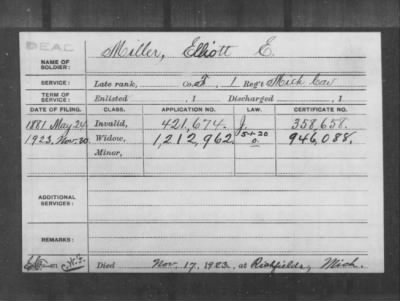 DEAC
Miller, Elliott E.
NAME OF SOLDIER:
SERVICE: Late rank, Co. F, 1 Reg't Mich Cav
TERM OF SERVICE: Enlisted , 1 Discharged , 1
DATE OF FILING. CLASS. APPLICATION NO. LAW. CERTIFICATE NO.
1881 May 24. Invalid, 421,674. J. 358,658.
1923. Nov. 30. Widow, 1,212,962 5-1-20 946,088.
Minor,
ADDITIONAL SERVICES:
REMARKS:
Died Nov. 17, 1923, at Richfield, Mich.